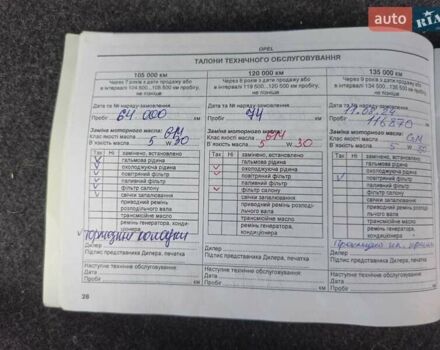 auto RIA
OPEL
ТАЛОНИ ТЕХНІЧНОГО ОБСЛУГОВУВАННЯ
105 000 км
Через 7 років з дати продажу або
в інтервалі 104 500...105 500 км пробігу,
не пізніше
Дата та № наряду-замовлення
Пробіг 64 000 км
Заміна моторного масла: GM
Клас якості масла
В'язкість масла 5 W 30
Так Ні замінено, встановлено
гальмова рідина
охолоджуюча рідина
повітряний фільтр
паливний фільтр
фільтр салону
свічки запалювання
приводний ремінь
розподільного вала
трансмісійне масло
ремінь генератора, конди-
ціонера
тормозные колодки
Дилер
Підпис представника Дилера, печатка
Наступне технічне обслуговування:
Дата
Пробіг км
28
120 000 км
Через 8 років з дати продажу або
в інтервалі 119 500...120 500 км пробігу,
не пізніше
Дата та № наряду-замовлення
Пробіг 74 км
Заміна моторного масла: GM
Клас якості масла
В'язкість масла 5 W 30
Так Ні замінено, встановлено
гальмова рідина
охолоджуюча рідина
повітряний фільтр
паливний фільтр
фільтр салону
свічки запалювання
приводний ремінь
розподільного вала
трансмісійне масло
ремінь генератора,
кондиціонера
Дилер
Підпис представника Дилера, печатка
Наступне технічне обслуговування:
Дата
Пробіг км
135 000 км
Через 9 років з дати продажу або
в інтервалі 134 500...135 500 км пробігу,
не пізніше
Дата та № наряду-замовлення
Пробіг 116870
Заміна моторного масла: GM
Клас якості масла
В'язкість масла 5 W 30
Так Ні замінено, встановлено
гальмова рідина
охолоджуюча рідина
повітряний фільтр
паливний фільтр
фільтр салону
свічки запалювання
приводний ремінь
розподільного вала
трансмісійне масло
ремінь генератора,
кондиціонера
Дилер
Підпис представника Дилера, печатка
Наступне технічне обслуговування:
Дата
Пробіг км